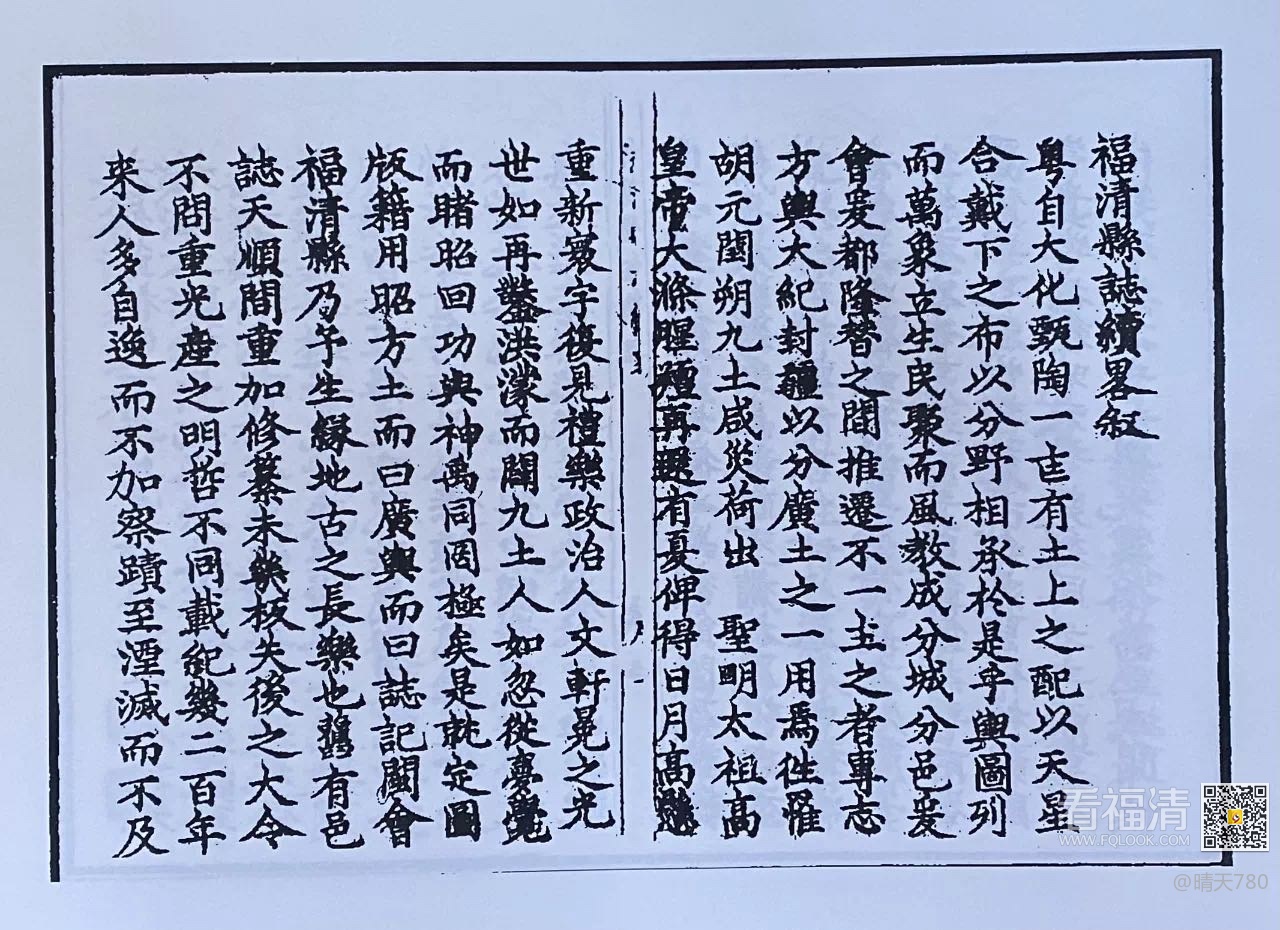 福清縣誌續畧叙
粤自大化甄陶一㐀有土上之配以天星
合戴下之布以分野相承於是乎輿圖列
而萬象立生民聚而風教成分城分邑爰
會爰都隆替之間推遷不一圡之者專志
方輿大紀封疆以分廣土之一用爲徃罹
胡元閏朔九土咸災荷出 聖明太祖高
皇帝大滌腥羶再還有夏俾得日月高懸
重新寰宇復見禮樂政治人文軒冕之光
世如再鑿洪濛而闢九土人如忽從夢覺
而睹昭回功與神禹同罔極矣是就定圖
版籍用昭方土而曰廣輿而曰誌記閩會
福清縣乃予生緣地古之長樂也舊有邑
誌天順間重加修纂未幾板失後之大令
不問重光產之明哲不同載紀幾二百年
來人多自逸而不加察蹟至湮滅而不及
看福清
WWW.FQLOOK.COM
@晴天780